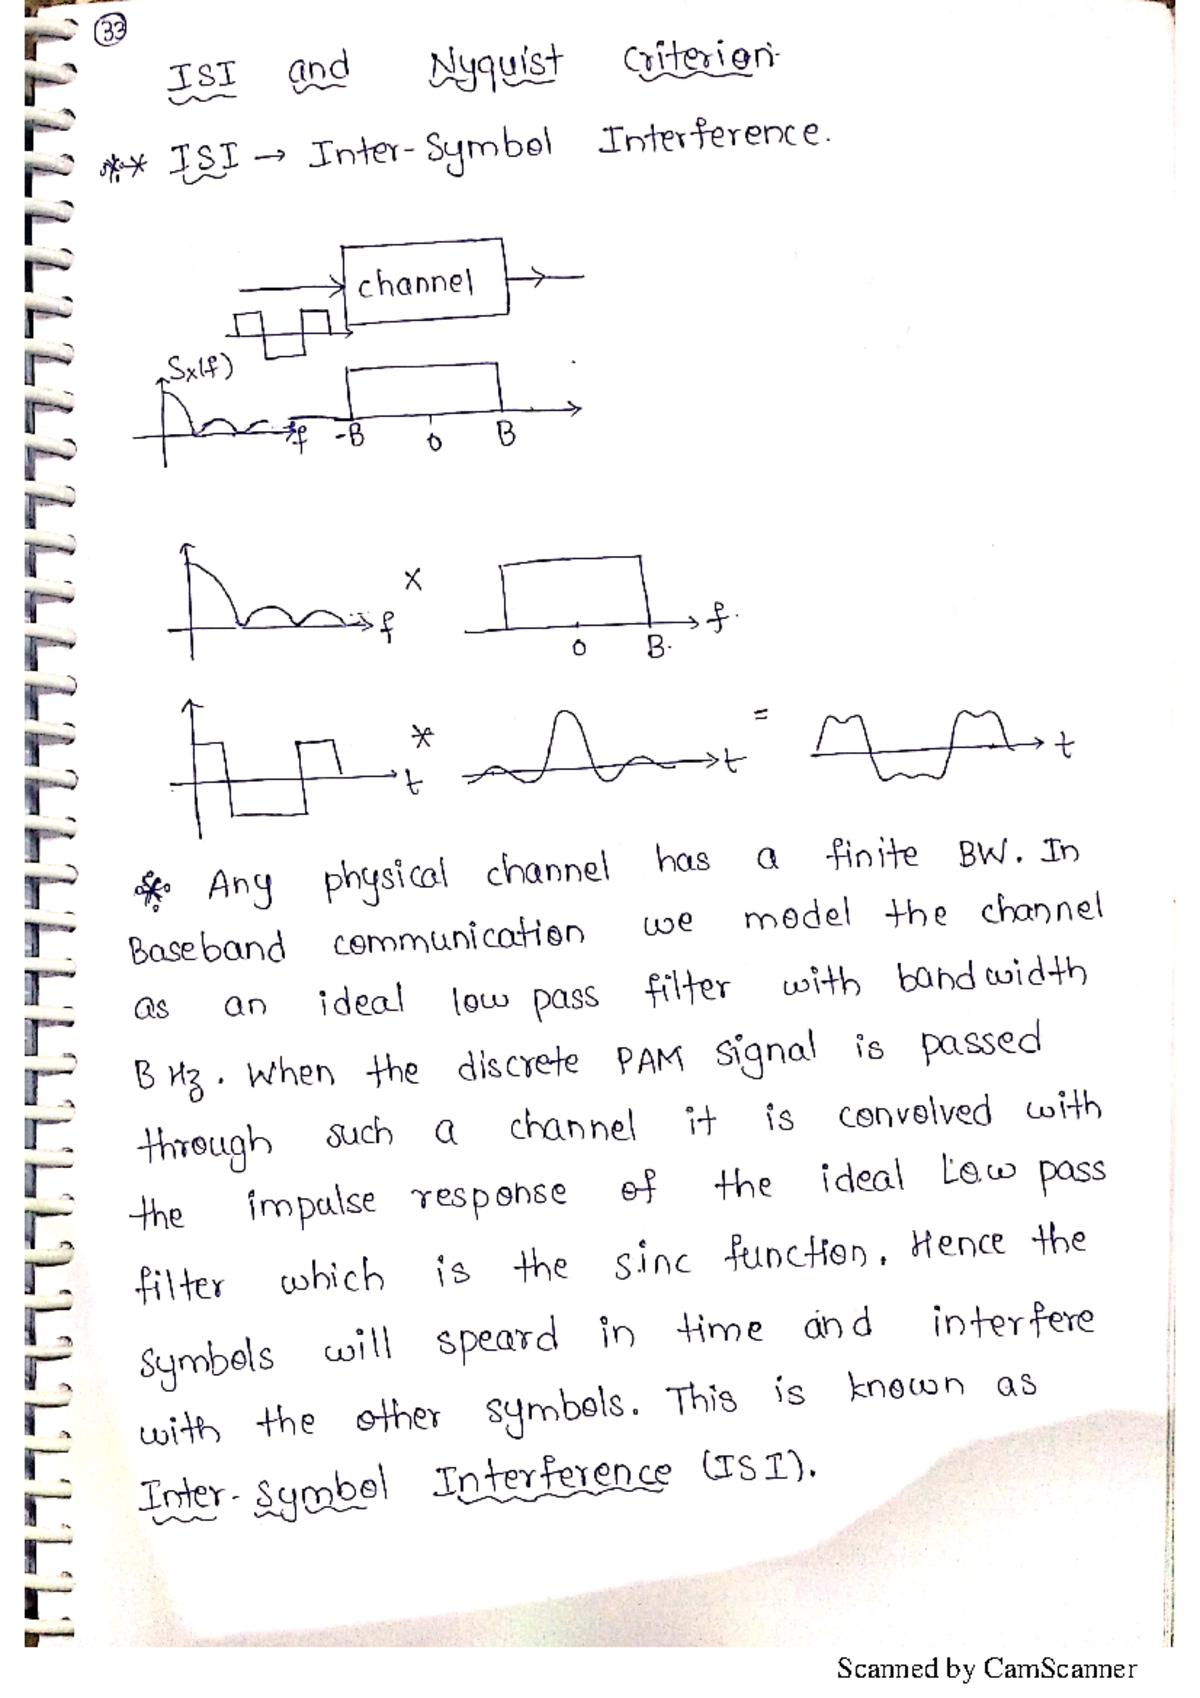 33
ISI and Nyquist Criterion
** ISI → Inter-Symbol Interference.
channel
Sx(f)
f -B 0 B
x
f f.
0 B.
* =
t t t
* Any physical channel has a finite BW. In
Baseband communication we model the channel
as an ideal low pass filter with bandwidth
B Hz. When the discrete PAM signal is passed
through such a channel it is convolved with
the impulse response of the ideal Low pass
filter which is the sinc function. Hence the
symbols will speard in time and interfere
with the other symbols. This is known as
Inter-Symbol Interference (ISI).
Scanned by CamScanner